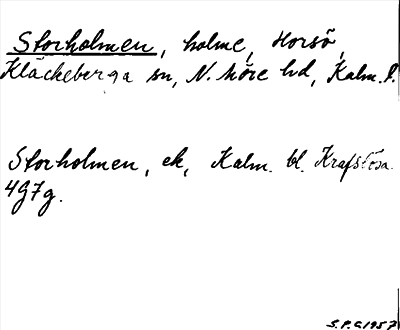 Storholmen, holme, Horsö,
Kläckeberga sn, N. Möre hd, Kalm. l.
Storholmen, ek, Kalm. bl. Krafslösa
4G7g.
S.P.G 1957